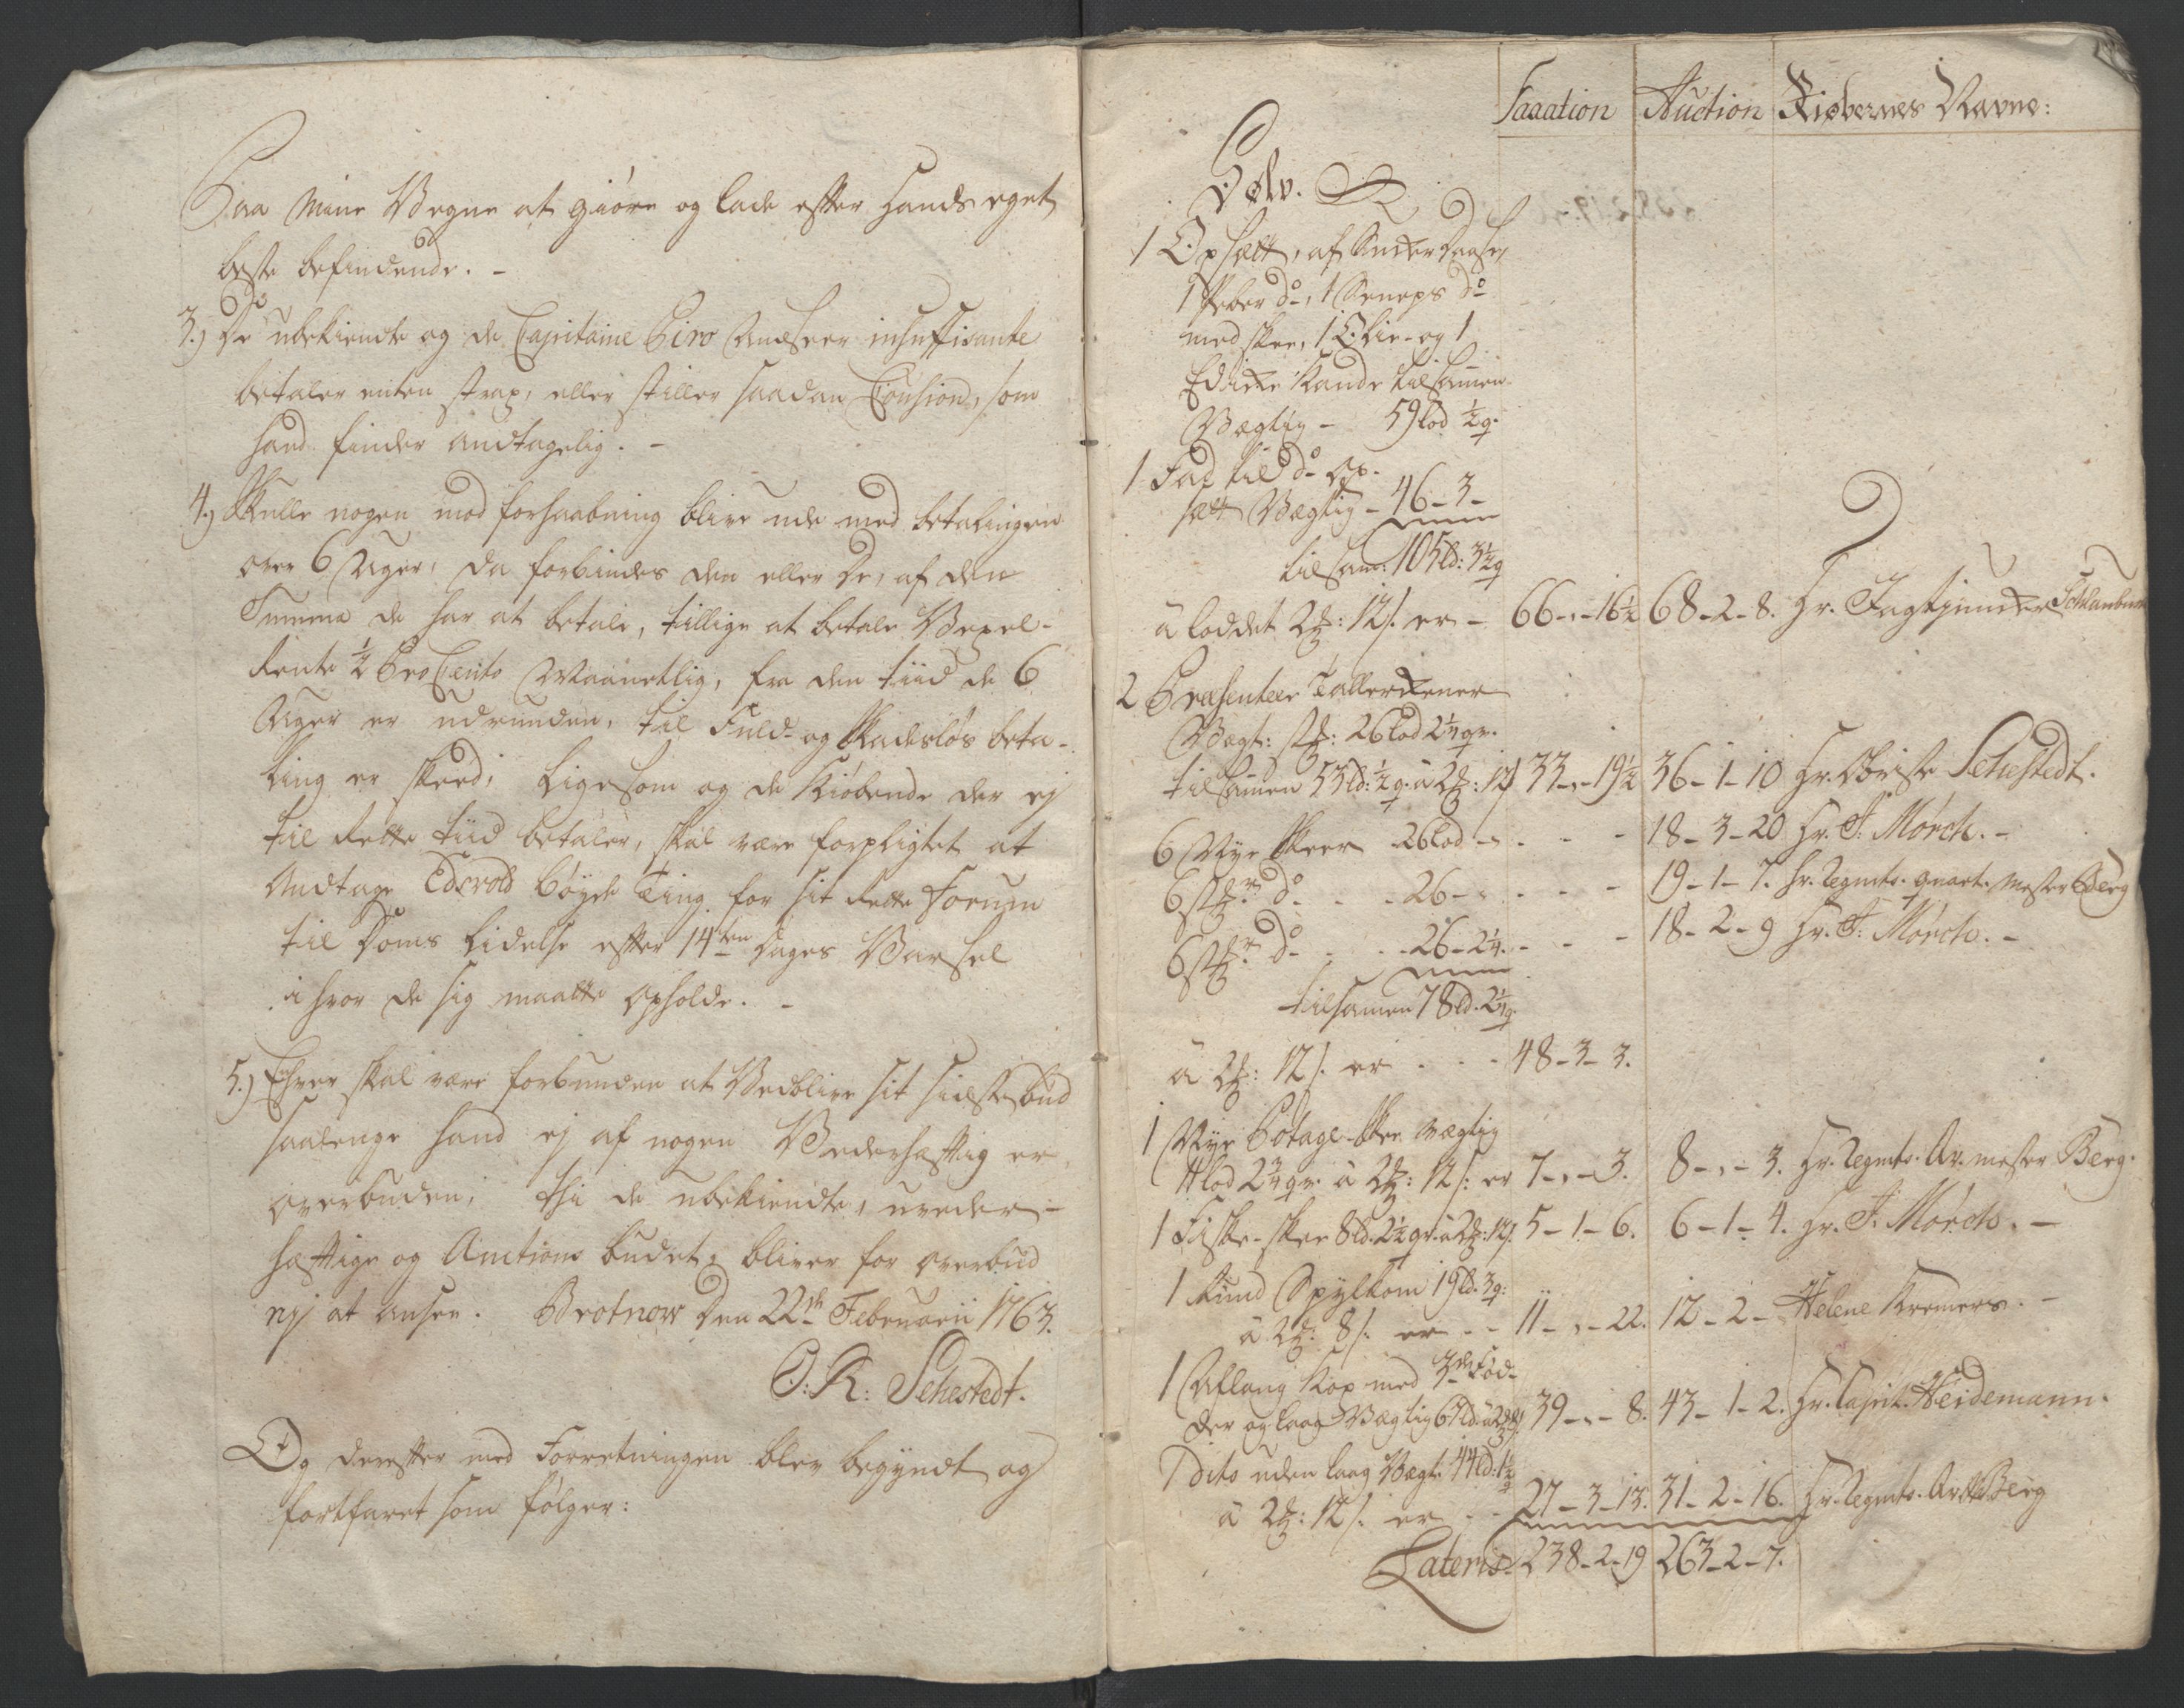 Paa mine Vegne at giøre og lade efter Hands eget
beste befindende. -
3.) De ubekiendte og de Capitaine Biro Andseer insuffisante
betaler enten strax, eller stiller saadan Caution, som
hand finder andtagelig. -
4.) Skulle nogen mod forhaabning blive ude med betalingen
over 6 Uger, da forbindes den eller de, af den
Summa de har at betale, tillige at betale Vexel-
Rente ½ Pro Cento Maanetlig, fra den tiid de 6
Uger er udrunden, til Fuld- og Skadesløs beta-
ling er skeed; Ligesom og de Kiøbende der ej
til rette tiid betaler, skal være forpligtet at
Andtage Edsvold Bøyde Ting for sit rette Forum
til Doms Lidelse efter 14ten Dages Varsel
i hvor de sig maatte opholde. -
5.) Enhver skal være forbunden at Vedblive sit sidste bud
saalenge hand ej af nogen Vederhæftig er
overbuden; thi de ubekiendte, uveder-
hæftige og Auctions budet, bliver for overbud
nej at ansee. Brotnow den 22de Februarii 1763.
O: R: Sehestedt.
Og derefter med Forretningen blev begyndt og
fortfaret som følger:
Taxation Auction Kiøbernes Navne:
Sølv.
1 Opsatt, af Sucker Daase,
1 Peber do, 1 Seneps do
med skee, 1 Olie- og 1
Edicke Kande tilsammen
Vægtig - 59 lod ½ q.
1 Fad til do Op-
satt Vægtig - 46 - 3 -
tilsam: 105 ld: 3½ q
a loddet 2 ꝝ: 12 s. er - 66 - „ - 16½ 68 - 2 - 8. Hr. Jagtjuncker
2 Præsenteer Tallerckener
Vægt: st: 26 lod 2¼ qr.
tilsammen 53 ld: ½ q. a 2 ꝝ: 12 s 33 - „ - 19½ 36 - 1 - 10 Hr. Obriste Sehestedt.
6 Nye Skeer - 26 lod - - - - 18 - 3 - 20 Hr. J: Mørch. -
6 st. do - - 26 - - - - 19 - 1 - 7. Hr. Regmts. quart. Mester Berg
6 st. do - - 26 - 2¼ - - - 18 - 2 - 9 Hr. J: Mørch. -
tilsamen 78 ld. 2¼ q.
a 2 ꝝ: 12 s. er - - - 48 - 3 - 3.
1 Nye Potage-Skee vægtig
11 lod 2¾ qr. a 2 ꝝ: 12 s: er 7 - „ - 3. 8 - „ - 3. Hr. Regmts. Qv. mester Berg.
1 Fiske-skee 8 ld. 2½ qr. a 2 ꝝ: 12 s. 5 - 1 - 6. 6 - 1 - 4. Hr. J: Mørch. -
1 Rund Spylkom 19 ld. 3 q:
a 2 ꝝ: 8 s. er - - 11 - „ - 22. 12 - 2 - Helene Kremers. -
1 Aflang Kop med 3de Fød-
der og laag Vægtig 67 ld: a 2 ꝝ 39 - „ - 8. 43 - 1 - 2. Hr. Capit. Heidemann.
1 dito uden laag Vægt. 44 ld: 1½ q
a 2 ꝝ: 12 s. er - - 27 - 3 - 13. 31 - 2 - 16. Hr. Regmts. Berg
Lateris 238 - 2 - 19 263 - 2 - 7.